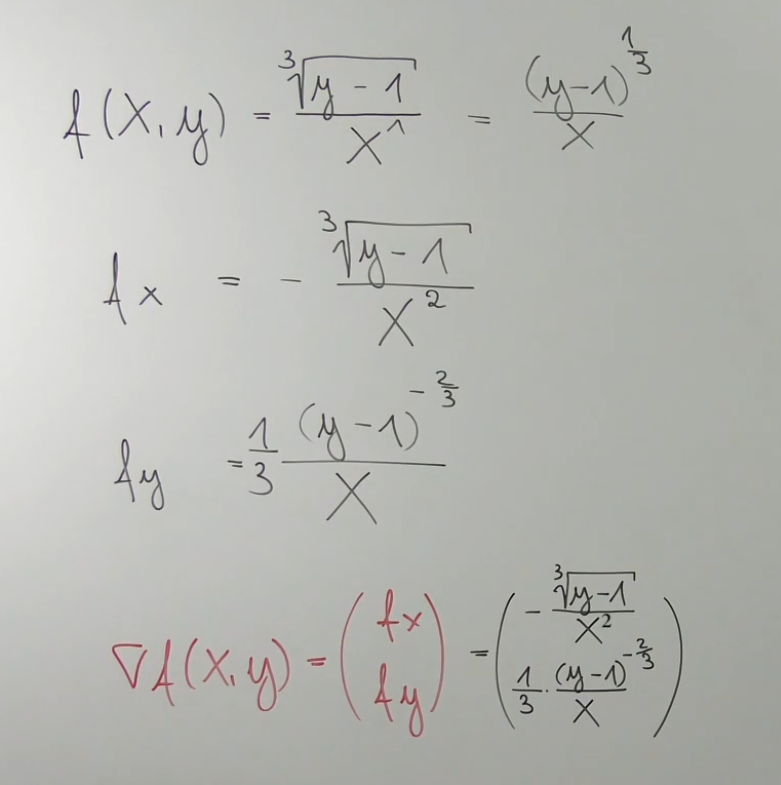 f(x,y) = ∛(y-1) / x¹ = (y-1)^(1/3) / x
fx = - ∛(y-1) / x²
fy = 1/3 (y-1)^(-2/3) / x
∇f(x,y) = (fx fy) = (- ∛(y-1) / x² 1/3 · (y-1)^(-2/3) / x)